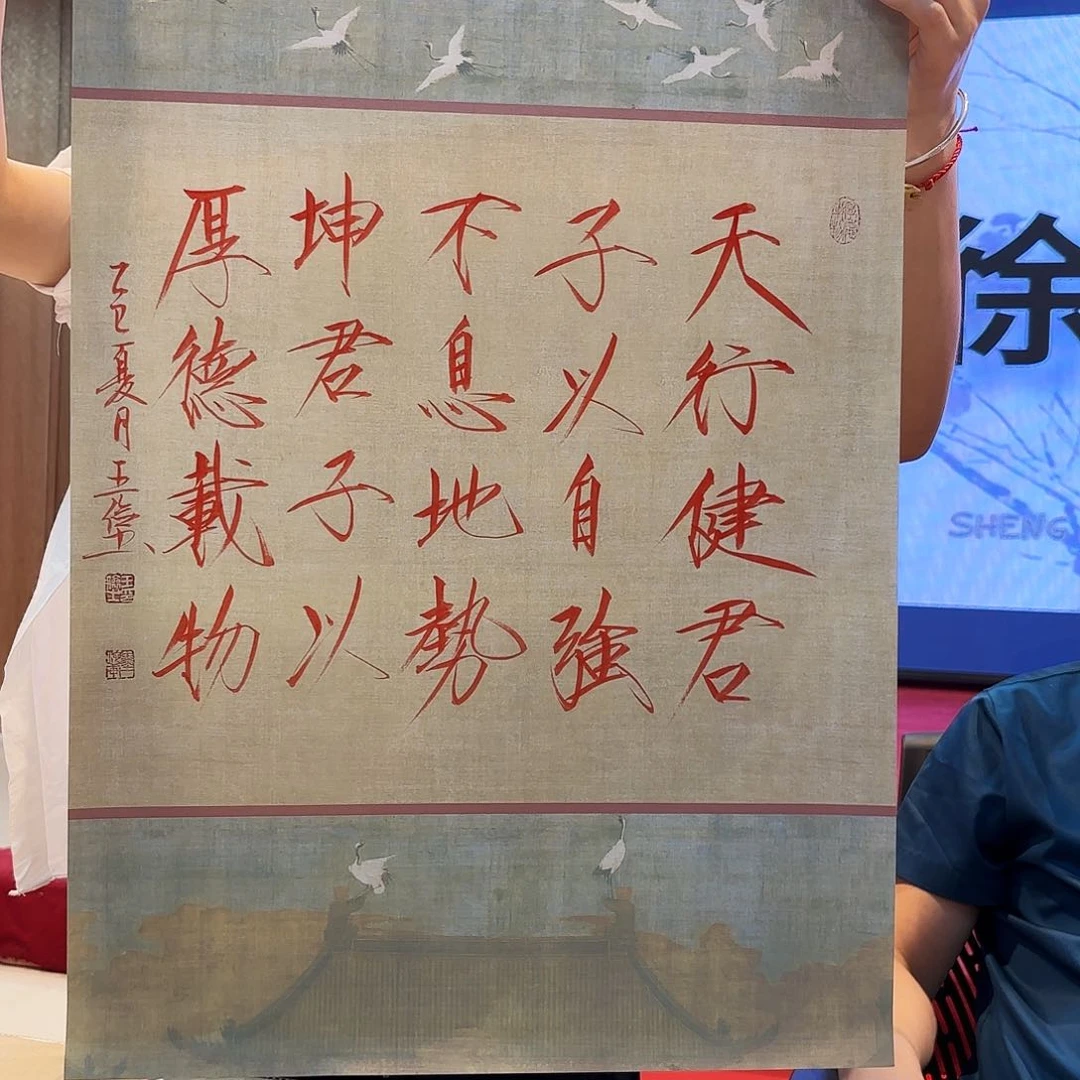 天行健君
子以自強
不息地勢
坤君子以
厚德載物
乙巳夏月王偉
徐
SHENG